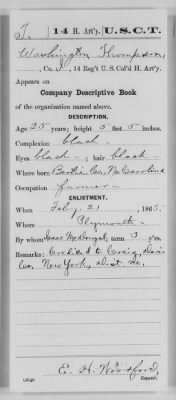 T. | 14 H. Art'y. | U.S.C.T.
Washington Thompson,
, Co. , 14 Reg't U. S. Col'd H. Art'y.
Appears on
Company Descriptive Book
of the organization named above.
DESCRIPTION.
Age 25 years; height 5 feet 5 inches.
Complexion black
Eyes black ; hair black
Where born Bertie Co, No Carolina
Occupation farmer
ENLISTMENT.
When Feby 21 , 1865.
Where Plymouth
By whom Isaac McDougal; term 3 y'rs.
Remarks: Credited to Craig,
Co. New York, Dist
E. H. Woodford,
Copyist.